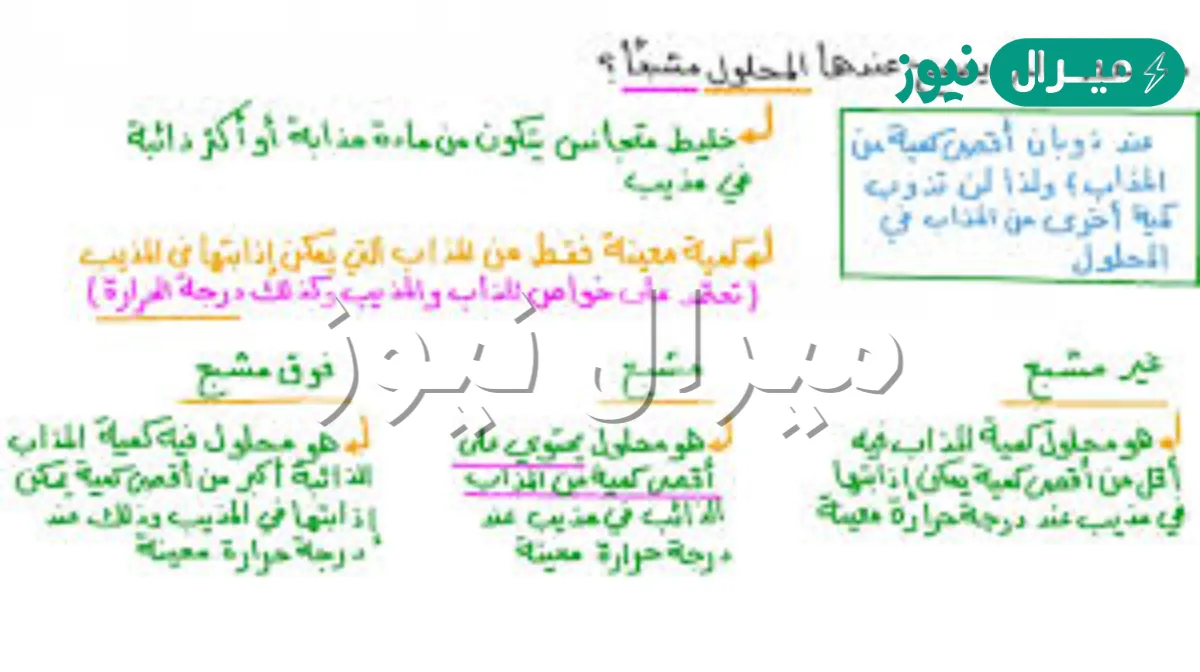 ميرال نيوز
عندها المحلول مشبعًا؟
خليط متجانس يتكون من مادة مذابة أو أكثر ذائبة
في مذيب
كمية معينة فقط من المذاب التي يمكن إذابتها في المذيب
(تعتمد على خواص المذاب والمذيب وكذلك درجة الحرارة)
عند ذوبان أقصى كمية من
المذاب، ولذا لن تذوب
كمية أخرى من المذاب في
المحلول
ميرال نيوز
غير مشبع
هو محلول كمية المذاب فيه
أقل من أقصى كمية يمكن إذابتها
في مذيب عند درجة حرارة معينة
مشبع
هو محلول يحتوي على
أقصى كمية من المذاب
الذائب في مذيب عند
درجة حرارة معينة
فوق مشبع
هو محلول فيه كمية المذاب
الذائبة أكبر من أقصى كمية يمكن
إذابتها في المذيب وذلك عند
درجة حرارة معينة